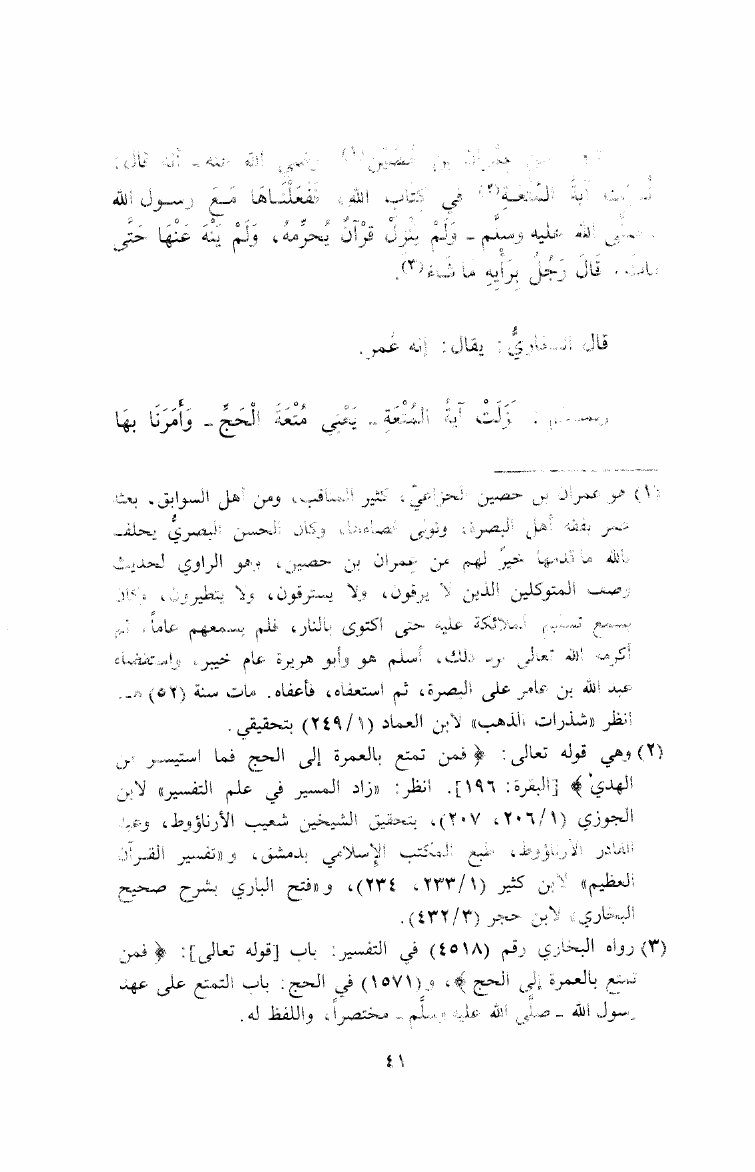 عن عِمْرَانَ بن حُصَيْن(١) رضي الله عنه ـ أنه قال:
نَزَلَت آيةُ المُتْعَـةِ(٢) في كِتَابِ الله، فَفَعَلْنَـاهَا مَـعَ رسـول الله
صلَّى الله عليه وسلَّم ـ وَلَمْ يَنْزِلْ قُرْآنٌ يُحرِّمهُ، وَلَمْ يَنْهَ عَنْهَا حَتَّى
مات، قَالَ رَجُلٌ بِرَأْيِهِ مَا شَاءَ(٣).
قال البخاريُّ: يقال: إنه عُمر.
ولمسلم: نَزَلَتْ آيةُ المُتْعَةِ ـ يَعْنِي مُتْعَةَ الْحَجِّ ـ وَأَمَرَنَا بهَا
(١) هو عمران بن حصين الخزاعيّ، كثير المناقب، ومن أهل السوابق. بعثه
عمر بفقه أهل البصرة، وتولى قضاءها، وكان الحسن البصريُّ يحلف
بالله ما قدمها خيرٌ لهم من عِمران بن حصين، وهو الراوي لحديث
وصف المتوكلين الذين لا يرقون، ولا يسترقون، ولا يتطيرون، وكان
يسمع تسليم الملائكة عليه حتى اكتوى بالنار، فلم يسمعهم عاماً، ثم
أكرمه الله تعالى برد ذلك، أسلم هو وأبو هريرة عام خيبر، واستقضاه
عبد الله بن عامر على البصرة، ثم استعفاه، فأعفاه. مات سنة (٥٢) هـ.
انظر «شذرات الذهب» لابن العماد (٢٤٩/١) بتحقيقي.
(٢) وهي قوله تعالى: ﴿ فمن تمتع بالعمرة إلى الحج فما استيسـر من
الهدي ﴾ [البقرة: ١٩٦]. انظر: «زاد المسير في علم التفسير» لابن
الجوزي (٢٠٦/١، ٢٠٧)، بتحقيق الشيخين شعيب الأرناؤوط، وعبد
القادر الأرناؤوط، طبع المكتب الإسلامي بدمشق، و«تفسير القـرآن
العظيم» لابن كثير (٢٣٣/١، ٢٣٤)، و«فتح الباري بشرح صحيح
البخاري» لابن حجر (٤٣٢/٣).
(٣) رواه البخاري رقم (٤٥١٨) في التفسير: باب [قوله تعالى]: ﴿ فمن
تمتع بالعمرة إلى الحج ﴾، و(١٥٧١) في الحج: باب التمتع على عهد
رسول الله ـ صلَّى الله عليه وسلَّم ـ مختصراً، واللفظ له.
٤١